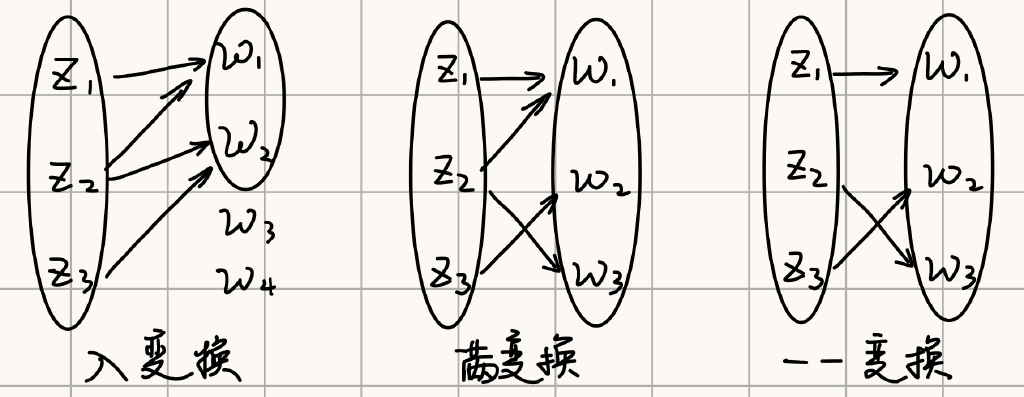 z₁
z₂
z₃
w₁
w₂
w₃
w₄
入变换
z₁
z₂
z₃
w₁
w₂
w₃
满变换
z₁
z₂
z₃
w₁
w₂
w₃
一一变换